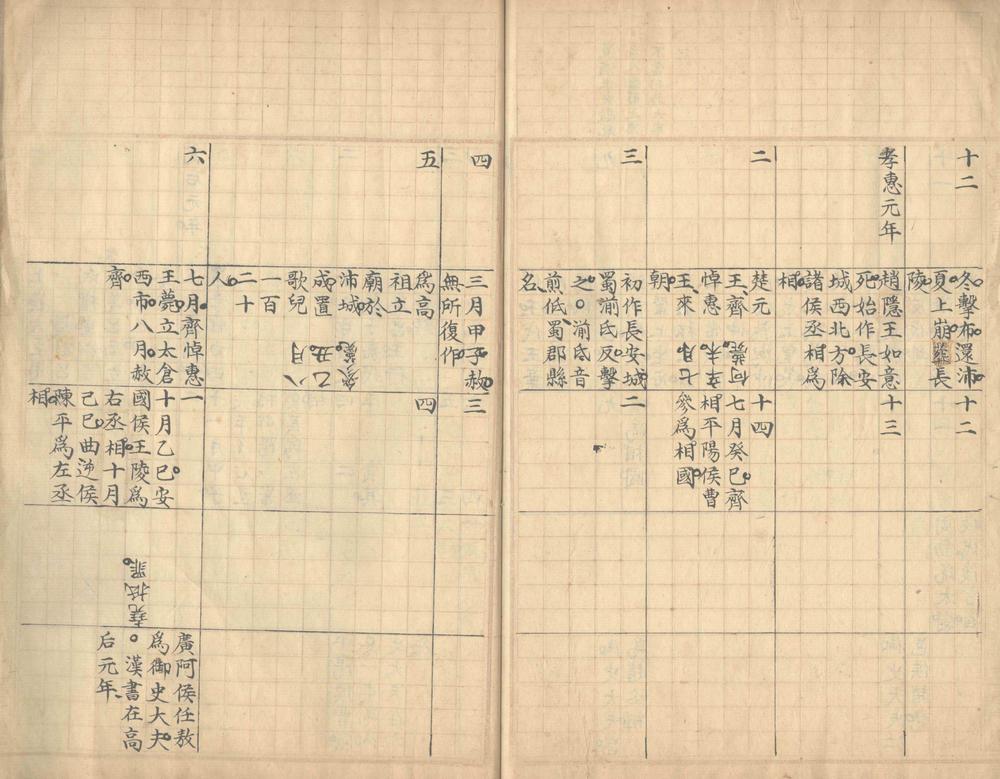 十二
冬擊布還沛
夏上崩葬長
陵
十二
孝惠元年
趙隱王如意
死始作長安
城西北方除
諸侯丞相爲
相
十三
二
楚元
王齊
悼惠
王來
朝
何薨
七月辛未
十四
七月癸巳齊
相平陽侯曹
參爲相國
三
初作長安城
蜀湔氐反擊
之○湔氐音
前低蜀郡縣
名
二
四
三月甲子赦
無所復作
三
五
爲高
祖立
廟於
沛城
成置
歌兒
一百
二十
人
參薨
八月乙丑
四
六
七月齊悼惠
王薨立太倉
西市八月赦
齊
一
十月乙巳安
國侯王陵爲
右丞相十月
己巳曲逆侯
陳平爲左丞
相
堯抵
罪
廣阿侯任敖
爲御史大夫
○漢書在高
后元年